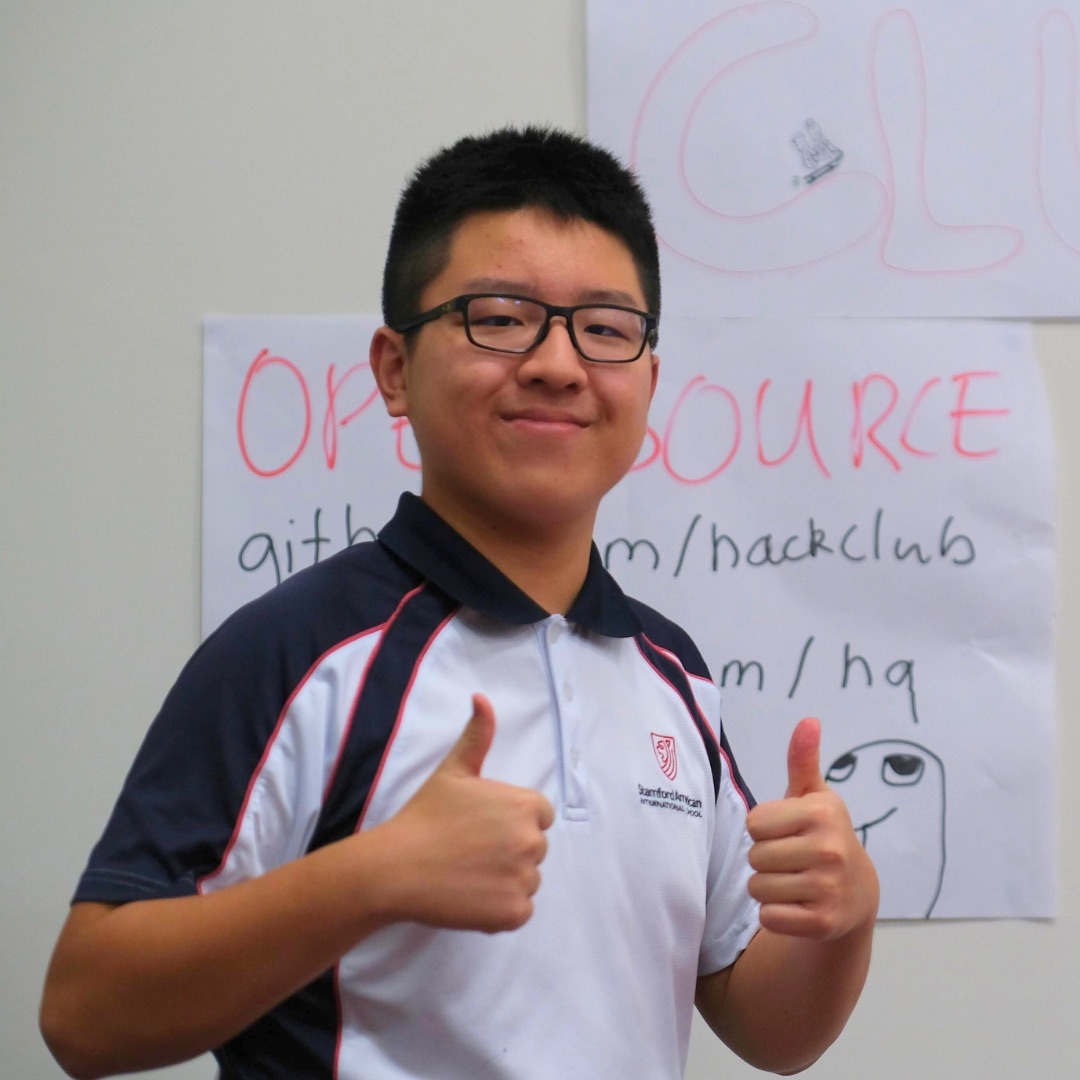 CLU
OPE SOURCE
gith m/hackclub
m/hq
Stamford American
INTERNATIONAL